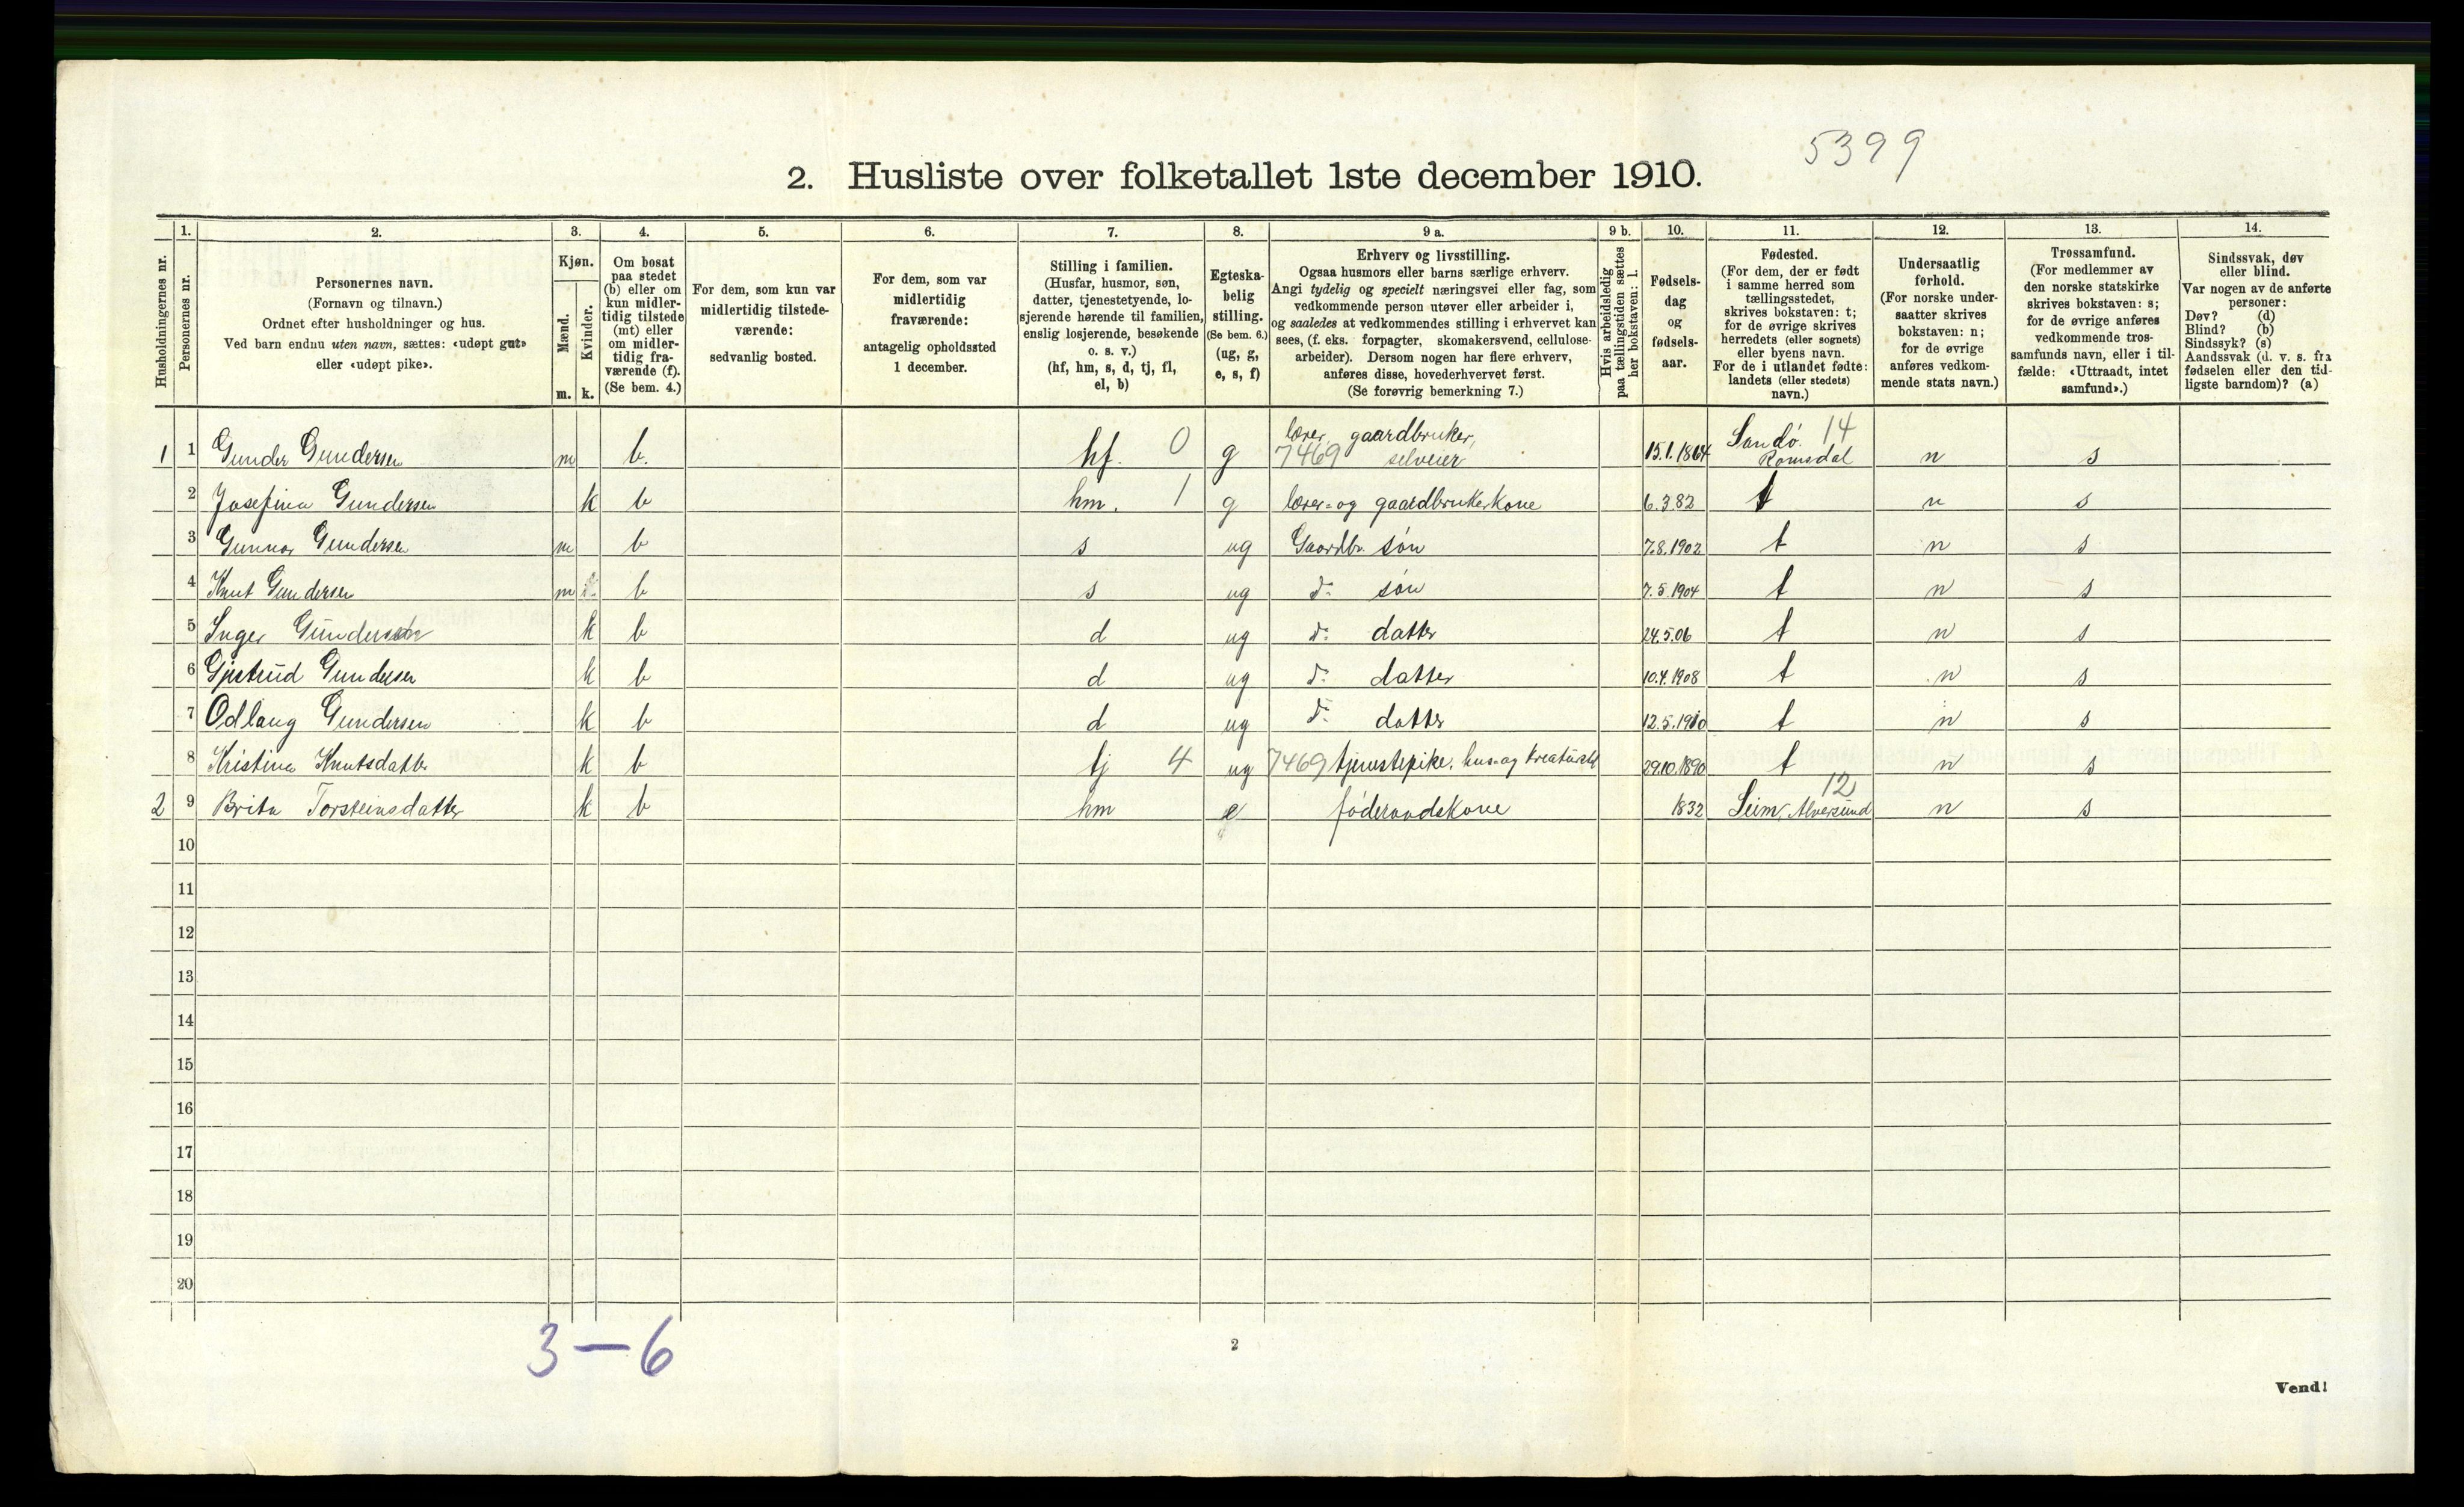 5399
2. Husliste over folketallet 1ste december 1910.
Husholdningernes nr.
1.
Personernes nr.
2.
Personernes navn.
(Fornavn og tilnavn.)
Ordnet efter husholdninger og hus.
Ved barn endnu uten navn, sættes: «udøpt gut»
eller «udøpt pike».
3.
Kjøn.
Mænd.
Kvinder.
m. k.
4.
Om bosat
paa stedet
(b) eller om
kun midler-
tidig tilstede
(mt) eller
om midler-
tidig fra-
værende (f).
(Se bem. 4.)
5.
For dem, som kun var
midlertidig tilstede-
værende:
sedvanlig bosted.
6.
For dem, som var
midlertidig
fraværende:
antagelig opholdssted
1 december.
7.
Stilling i familien.
(Husfar, husmor, søn,
datter, tjenestetyende, lo-
sjerende hørende til familien,
enslig losjerende, besøkende
o. s. v.)
(hf, hm, s, d, tj, fl,
el, b)
8.
Egteska-
belig
stilling.
(Se bem. 6.)
(ug, g,
e, s, f)
9 a.
Erhverv og livsstilling.
Ogsaa husmors eller barns særlige erhverv.
Angi tydelig og specielt næringsvei eller fag, som
vedkommende person utøver eller arbeider i,
og saaledes at vedkommendes stilling i erhvervet kan
sees, (f. eks. forpagter, skomakersvend, cellulose-
arbeider). Dersom nogen har flere erhverv,
anføres disse, hovederhvervet først.
(Se forøvrig bemerkning 7.)
9 b.
Hvis arbeidsledig
paa tællingstiden sættes
her bokstaven: l.
10.
Fødsels-
dag
og
fødsels-
aar.
11.
Fødested.
(For dem, der er født
i samme herred som
tællingsstedet,
skrives bokstaven: t;
for de øvrige skrives
herredets (eller sognets)
eller byens navn.
For de i utlandet fødte:
landets (eller stedets)
navn.)
12.
Undersaatlig
forhold.
(For norske under-
saatter skrives
bokstaven: n;
for de øvrige
anføres vedkom-
mende stats navn.)
13.
Trossamfund.
(For medlemmer av
den norske statskirke
skrives bokstaven: s;
for de øvrige anføres
vedkommende tros-
samfunds navn, eller i til-
fælde: «Uttraadt, intet
samfund».)
14.
Sindssvak, døv
eller blind.
Var nogen av de anførte
personer:
Døv? (d)
Blind? (b)
Sindssyk? (s)
Aandssvak (d. v. s. fra
fødselen eller den tid-
ligste barndom)? (a)
1 1 Gunder Gundersen m b. hf. 0 g lærer, gaardbruker, 7469 selveier 15.1.1864 Sandö. 14 Romsdal n s
2 Josefina Gundersen k b hm. 1 g lærer- og gaardbrukerkone 6.3.82 t n s
3 Gunnar Gundersen m b s ug Gaardbr. søn 7.8.1902 t n s
4 Knut Gundersen m b s ug do søn 7.5.1904 t n s
5 Inger Gundersen k b d ug do datter 24.5.06 t n s
6 Gjertrud Gundersen k b d ug do datter 10.4.1908 t n s
7 Odlaug Gundersen k b d ug do datter 12.5.1910 t n s
8 Kristina Knutsdatter k b tj 4 ug 7469 tjenestepike, hus- og kreaturstel 29.10.1890 t n s
2 9 Brita Torsteinsdatter k b hm e føderaadskone 1832 Seim, Alversund 12 n s
10
11
12
13
14
15
16
17
18
19
20
3-6
2
Vend!